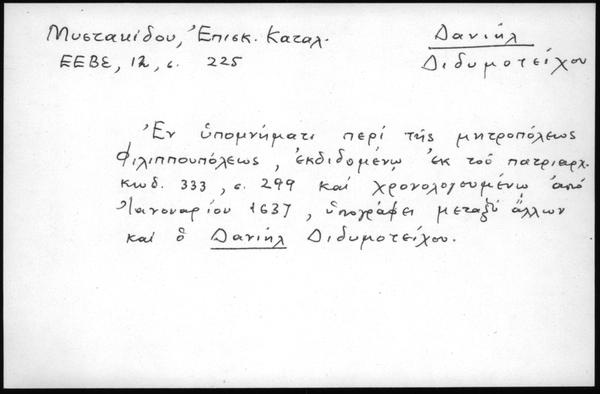 Μυστακίδου, Ἐπισκ. Καταλ.
Δανιήλ
ΕΕΒΣ, 12, σ. 225
Διδυμοτείχου
Ἐν ὑπομνήματι περί τῆς μητροπόλεως
Φιλιππουπόλεως, ἐκδιδομένῳ ἐκ τοῦ πατριαρχ.
κωδ. 333, σ. 299 καί χρονολογουμένῳ ἀπό
Ἰανουαρίου 1637, ὑπογράφει μεταξύ ἄλλων
καί ὁ Δανιήλ Διδυμοτείχου.